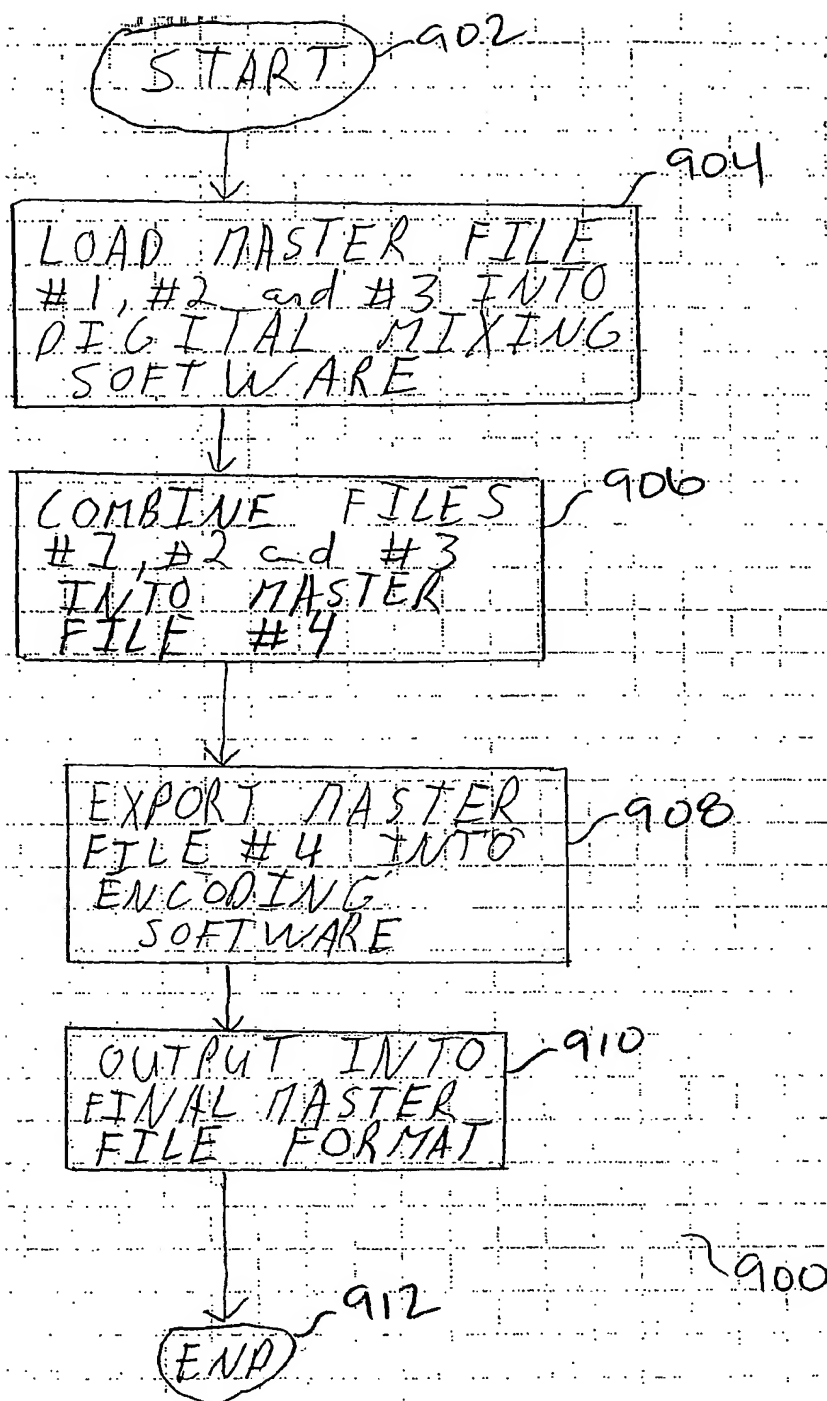 START
902
904
LOAD MASTER FILE
#1, #2 and #3 INTO
DIGITAL MIXING
SOFTWARE
906
COMBINE FILES
#1, #2 and #3
INTO MASTER
FILE #4
908
EXPORT MASTER
FILE #4 INTO
ENCODING
SOFTWARE
910
OUTPUT INTO
FINAL MASTER
FILE FORMAT
900
912
END